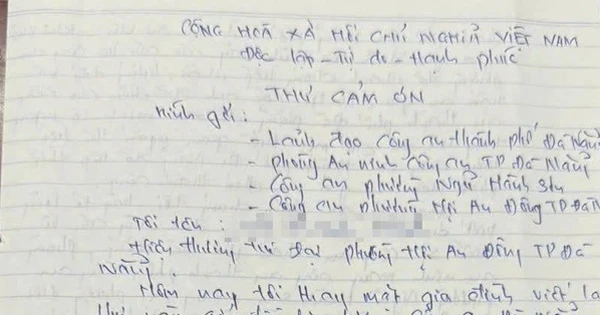 CỘNG HOÀ XÃ HỘI CHỦ NGHĨA VIỆT NAM
Độc lập - Tự do - Hạnh phúc
THƯ CẢM ƠN
Kính gửi:
- Lãnh đạo công an thành phố Đà Nẵng
- Phòng An ninh công an TP Đà Nẵng
- Công an phường Ngũ Hành Sơn
- Công an phường Hội An Đông TP Đà
Tôi tên :
Hiện thường trú tại phường Hội An Đông TP Đà
Nẵng.
Hôm nay tôi thay mặt gia đình viết lá